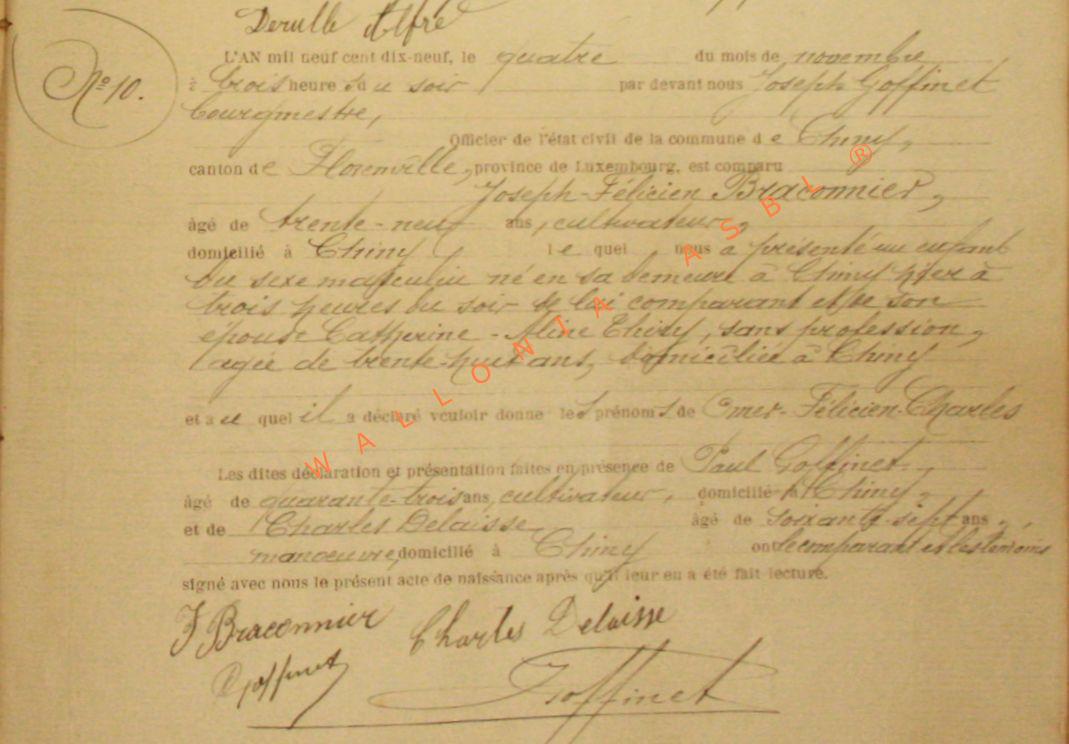 Derulle Alfre
No 10.
L'AN mil neuf cent dix-neuf, le quatre du mois de novembre
à trois heure s du soir par devant nous Joseph Goffinet
bourgmestre,
Officier de l'état civil de la commune d e Chiny,
canton de Florenville, province de Luxembourg, est comparu
Joseph-Félicien Braconnier,
âgé de trente-neuf ans, cultivateur,
domicilié à Chiny le quel nous a présenté un enfant
du sexe masculin né en sa demeure à Chiny hier à
trois heures du soir de lui comparant et de son
épouse Catherine-Aline Thiry, sans profession,
agée de trente-huit ans, domiciliée à Chiny
et a u quel il a déclaré vouloir donne les prénoms de Omer-Félicien-Charles
Les dites déclaration et présentation faites en présence de Paul Goffinet,
âgé de quarante-trois ans, cultivateur, domicilié à Chiny,
et de Charles Delaisse âgé de soixante-sept ans,
manoeuvre, domicilié à Chiny ont le comparant et les témoins
signé avec nous le présent acte de naissance après qu'il leur en a été fait lecture.
J Braconnier Charles Delaisse
P Goffinet J Goffinet
WALLONIA ASBL ®